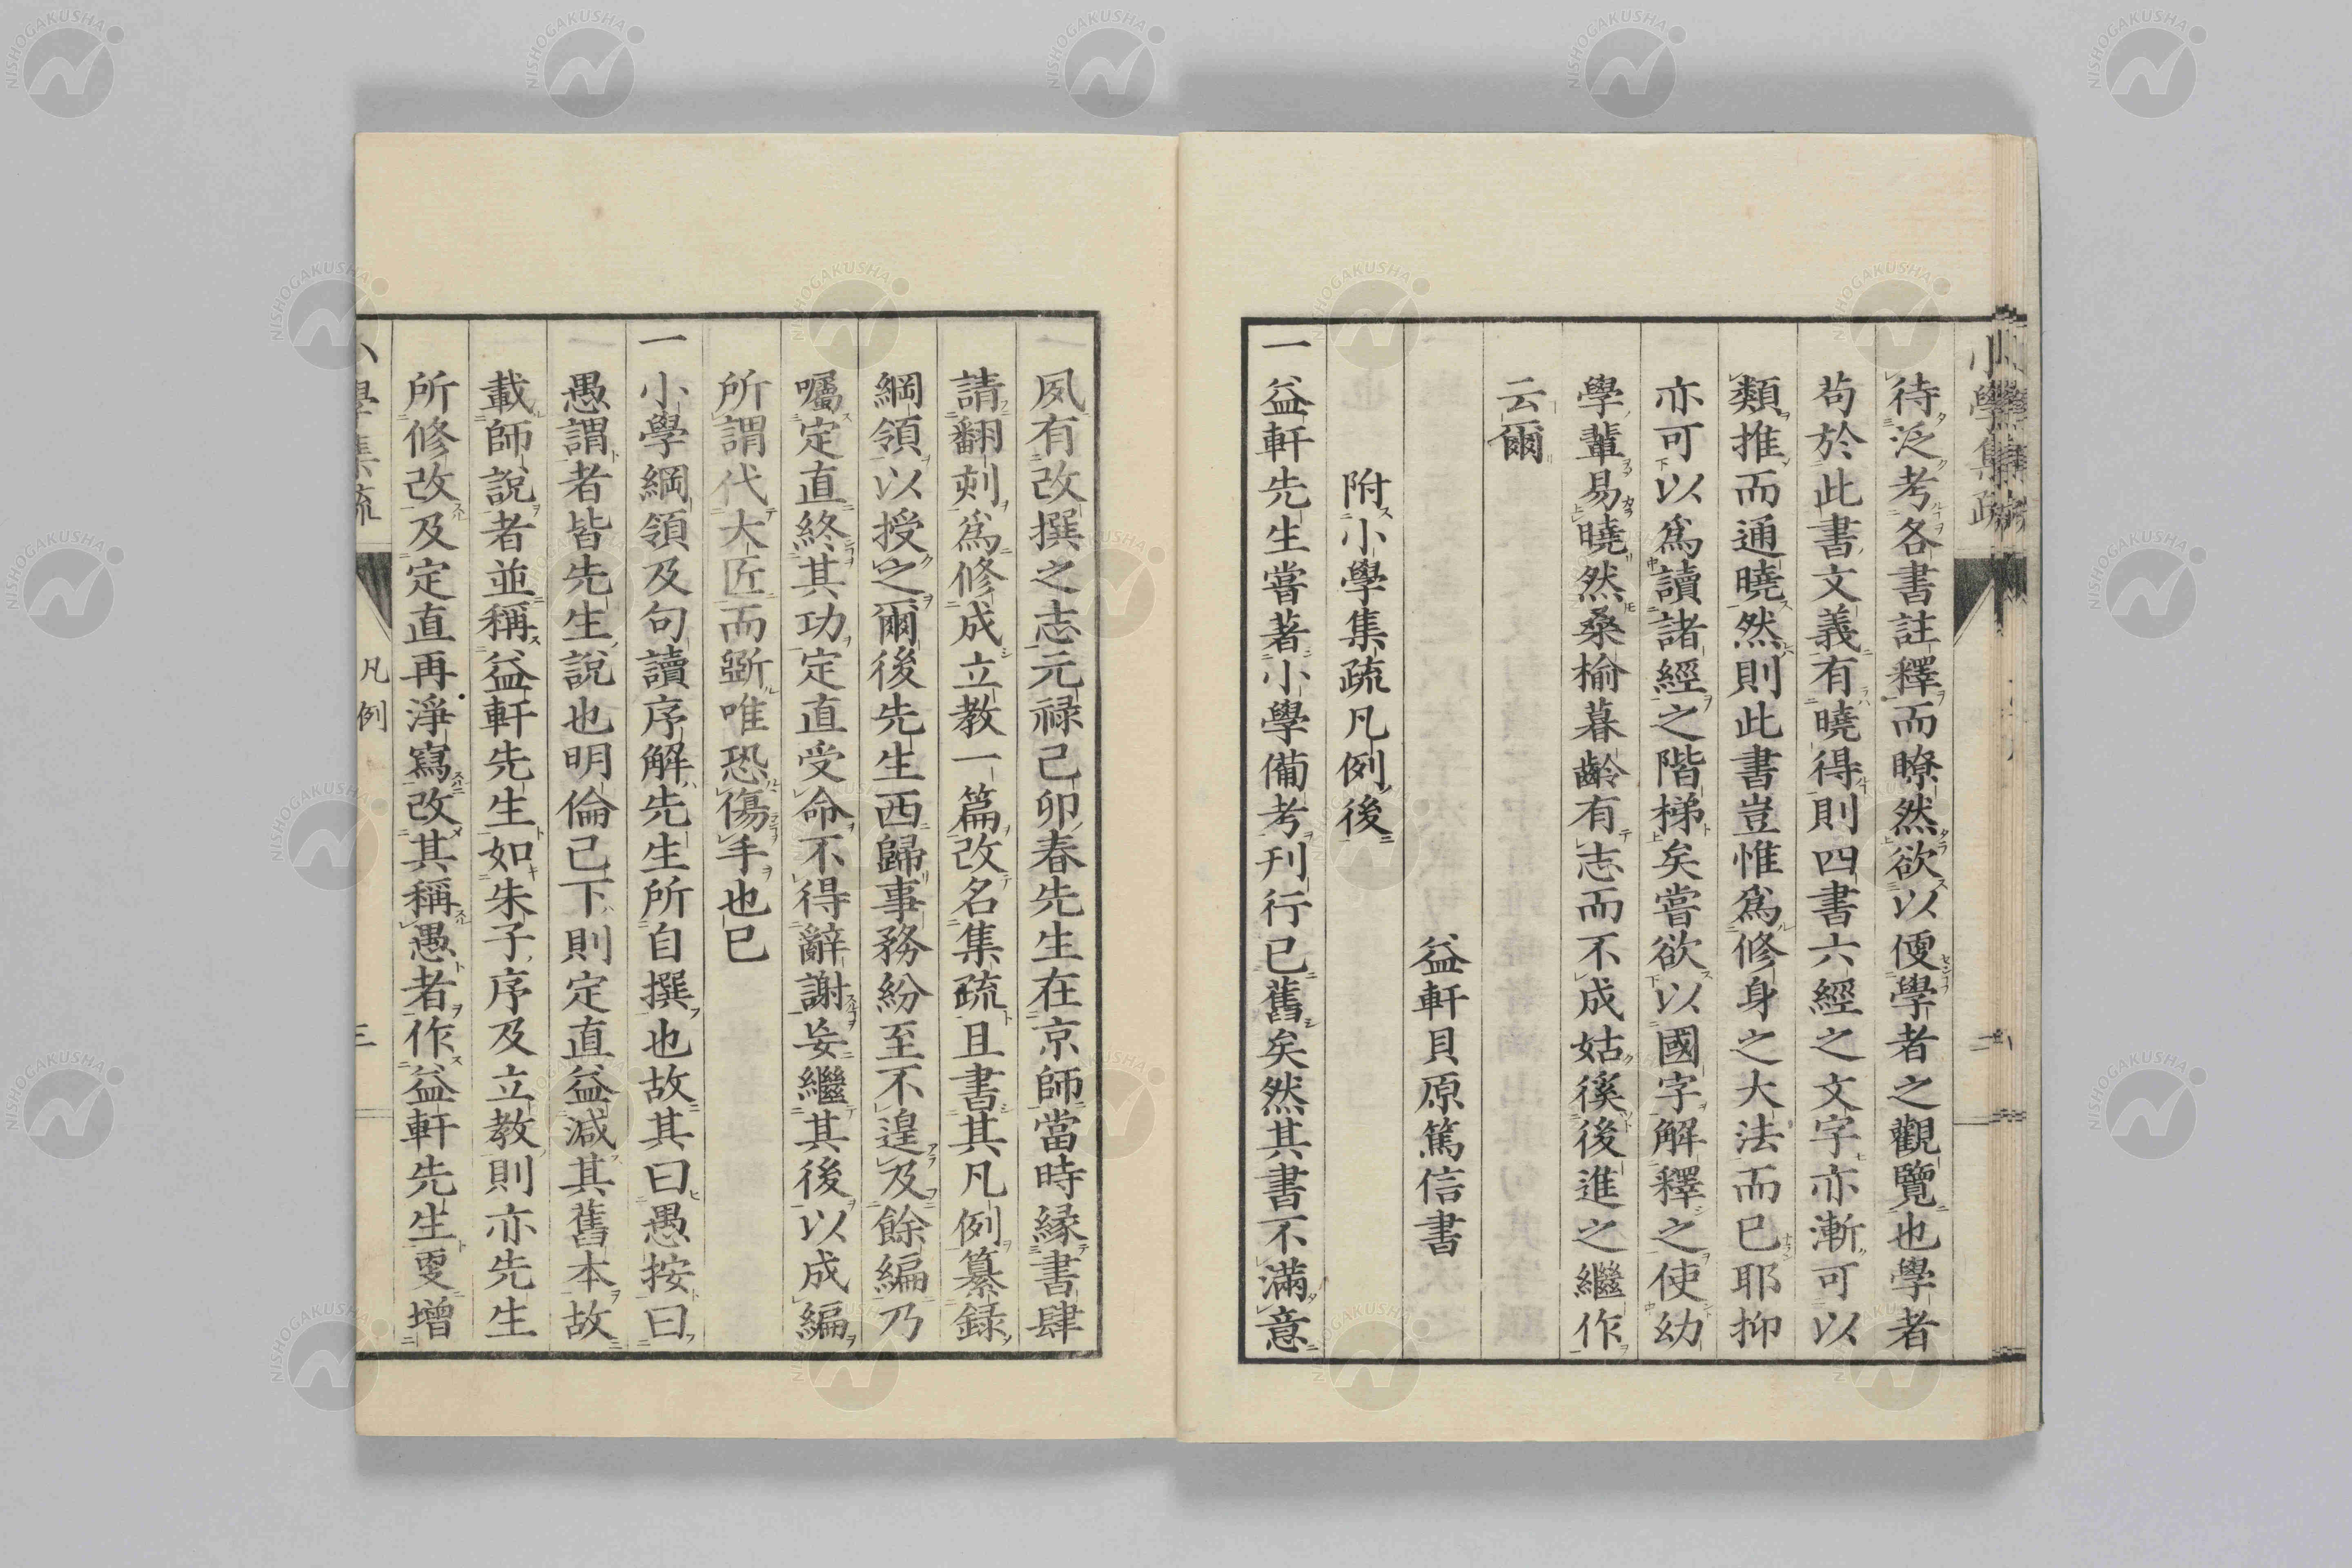 小學集疏
待泛考各書註釋而瞭然欲以便學者之觀覽也學者
苟於此書文義有曉得則四書六經之文字亦漸可以
類推而通曉然則此書豈惟爲修身之大法而已耶抑
亦可以爲讀諸經之階梯矣嘗欲以國字解釋之使幼
學輩易曉然桑榆暮齡有志而不成姑徯後進之繼作
云爾
益軒貝原篤信書
附小學集疏凡例後
一益軒先生嘗著小學備考刊行已舊矣然其書不滿意
夙有改撰之志元禄己卯春先生在京師當時縁書肆
請翻刻爲修成立教一篇改名集疏且書其凡例纂録
綱領以授之爾後先生西歸事務紛至不遑及餘編乃
囑定直終其功定直受命不得辭謝妄繼其後以成編
所謂代大匠而斲唯恐傷手也已
一小學綱領及句讀序解先生所自撰也故其曰愚按曰
愚謂者皆先生説也明倫已下則定直益減其舊本故
載師說者並稱益軒先生如朱子序及立教則亦先生
所修改及定直再淨寫改其稱愚者作益軒先生更增
小學集疏 凡例 三
NISHOGAKUSHA